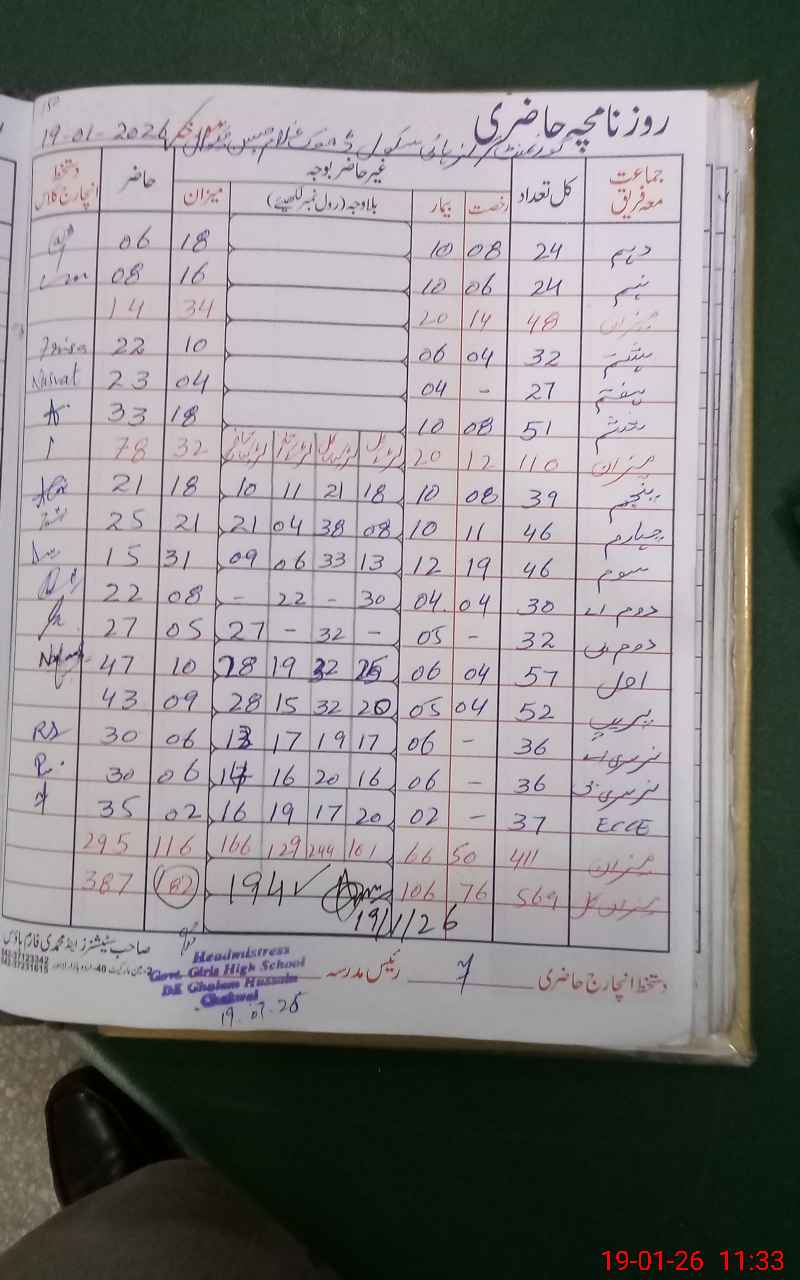 روزنامچہ حاضری
گورنمنٹ گرلز ہائی سکول ڈھوک غلام حسین چکوال 19-01-2026
جماعت معہ فریق کل تعداد غیر حاضر بوجہ حاضر دستخط انچارج کلاس
رخصت بیمار بلاوجہ (رول نمبر لکھیے) میزان
دہم 24 08 10 18 06
نہم 24 06 10 16 08
میزان 48 14 20 34 14
ہشتم 32 04 06 10 22
ہفتم 27 - 04 04 23 Nusrat
ششم 51 08 10 18 33
میزان 110 12 20 32 78
پنجم 39 08 10 18 21 11 10 18 21
چہارم 46 11 10 08 38 04 21 21 25
سوم 46 19 12 13 33 06 09 31 15
دوم اے 30 04 04 30 - 22 - 08 22
دوم بی 32 - 05 - 32 - 27 05 27
اول 57 04 06 25 32 19 28 10 47
پریپ 52 04 05 20 32 15 28 09 43
نرسری اے 36 - 06 17 19 17 13 06 30 RS
نرسری بی 36 - 06 16 20 16 14 06 30
ECCE 37 - 02 20 17 19 16 02 35
میزان 411 50 66 161 244 129 166 116 295
میزان کل 569 76 106 194✓ 182 387
19/1/26
دستخط انچارج حاضری رئیس مدرسہ
Headmistress
Govt. Girls High School
DK Ghulam Hussain
Chakwal
19-01-26 11:33